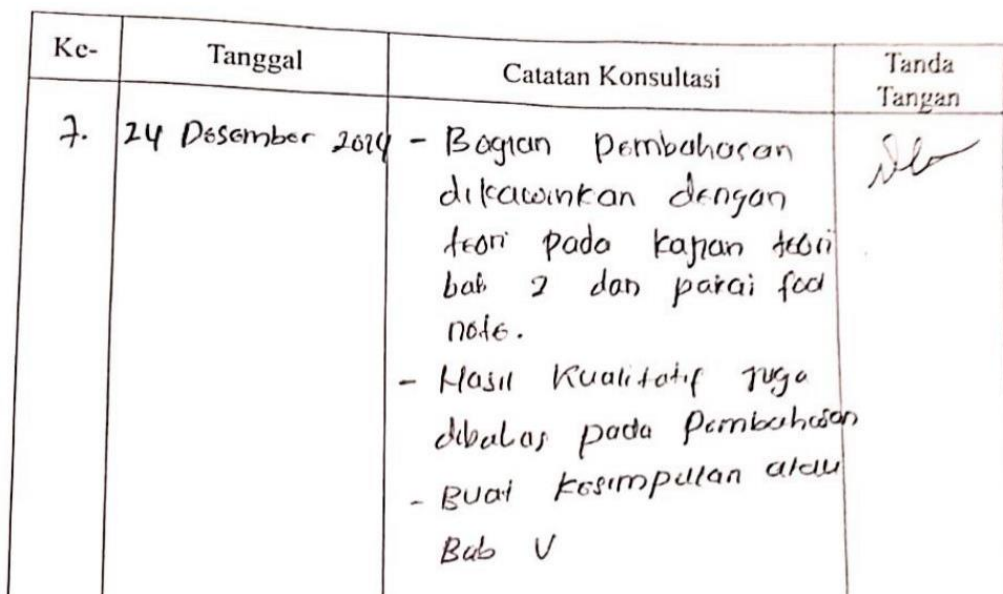 Ke- Tanggal Catatan Konsultasi Tanda Tangan
7. 24 Desember 2024 - Bagian pembahasan
dikawinkan dengan
teori pada kajian teori
bab 2 dan pakai food
note.
- Hasil Kualitatif juga
dibahas pada Pembahasan
- Buat kesimpulan atau
Bab V